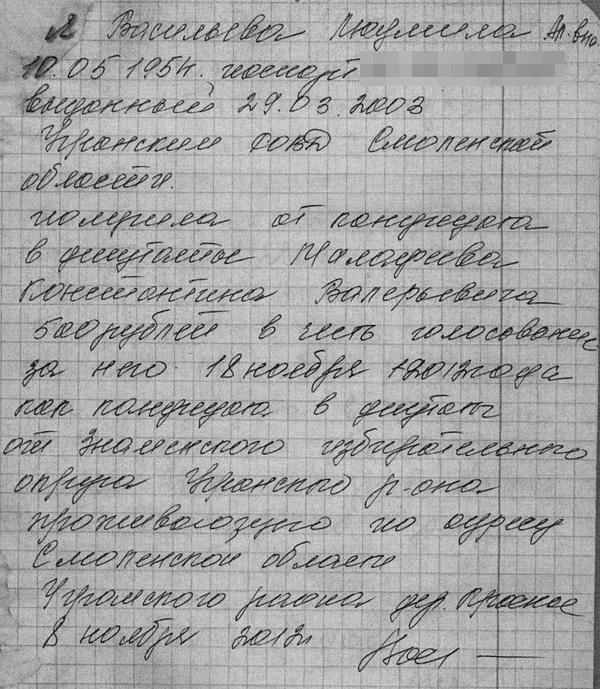 Я Васильева Людмила Ал-вна
10.05 1954г. паспорт
выданный 29.03.2003
Угранским РОВД Смоленской
области.
получила от кандидата
в депутаты Малафеева
Константина Валерьевича
500 рублей в честь голосования
за него 18 ноября 2012 года
как кандидата в депутаты
от Знаменского избирательного
округа Угранского р-она
проживающую по адресу
Смоленской области
Угранского раона дер. Красное
8 ноября 2012г